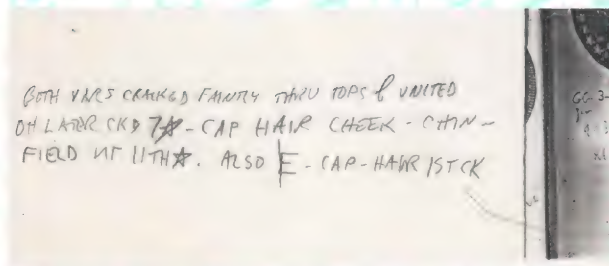 BOTH VARS CRACKED FAINTLY THRU TOPS OF UNITED
ON LATER CKD 7☆ - CAP HAIR CHEEK - CHIN -
FIELD NR 11TH☆. ALSO E - CAP - HAIR 1ST CK
GG-3-